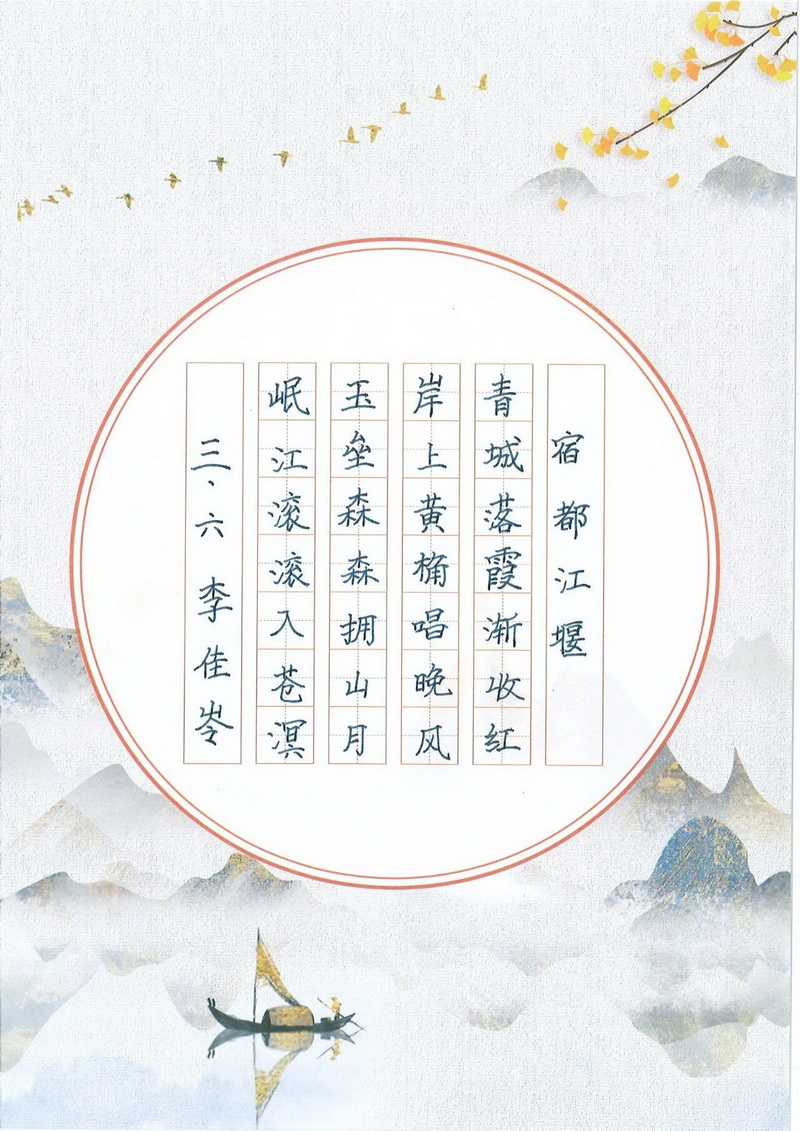 宿都江堰
青城落霞渐收红
岸上黄桷唱晚风
玉垒森森拥山月
岷江滚滚入苍溟
三、六 李佳岑